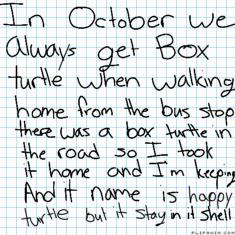 In October we
Always get Box
turtle when walking
home from the bus stop
there was a box turtle in
the road so I took
it home and I'm keeping
And it name is happy
turtle but it stay in it shell
FLIPNHIM.COM